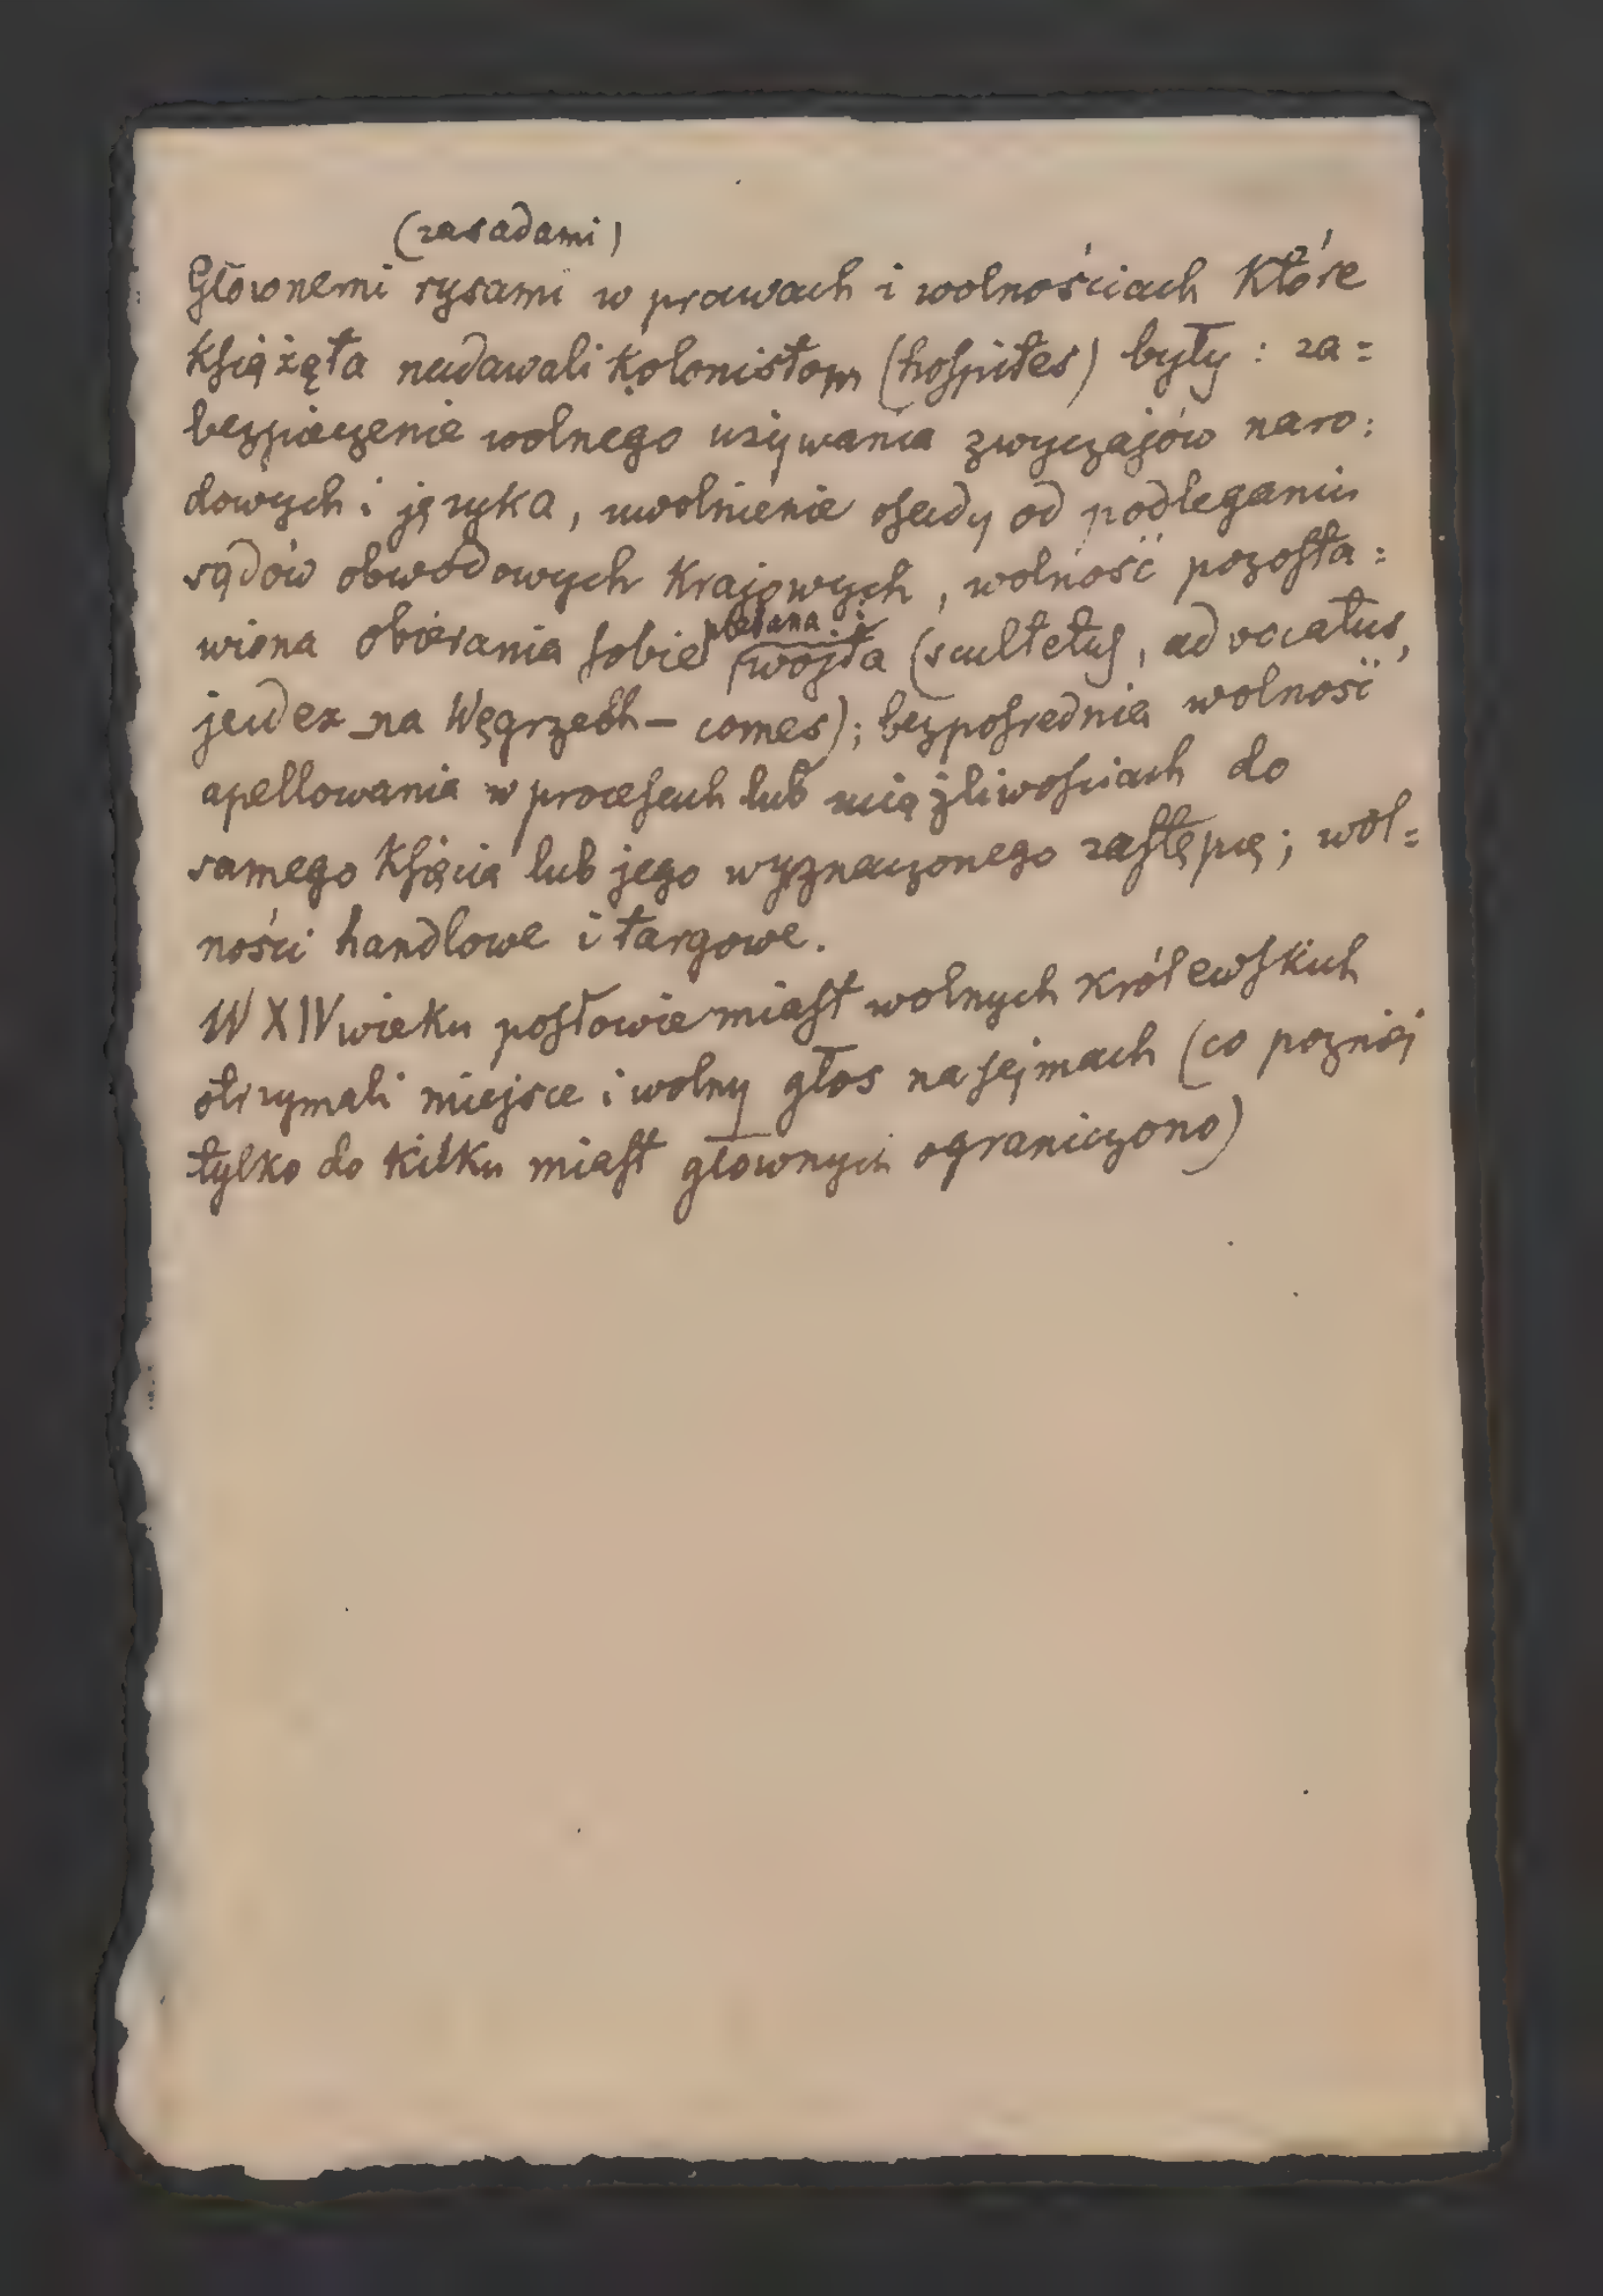 (zasadami)
Głownemi rysami w prawach i wolnościach które
książęta nadawali kolonistom (hospites) były : za=
bezpieczenie wolnego używania zwyczajów naro:
dowych i języka, uwolnienie osady od podlegania
sądów obwodowych krajowych, wolność pozosta=
wiona obierania sobie plebana i
wojta (scultetus, advocatus,
judex na Węgrzech – comes); bezpośrednia wolność
apellowania w procesach lub uciążliwościach do
samego księcia lub jego wyznaczonego zastępcę; wol=
ności handlowe i targowe.
W XIV wieku posłowie miast wolnych królewskich
otrzymali miejsce i wolny głos na sejmach (co pozniej
tylko do kilku miast głownych ograniczono)